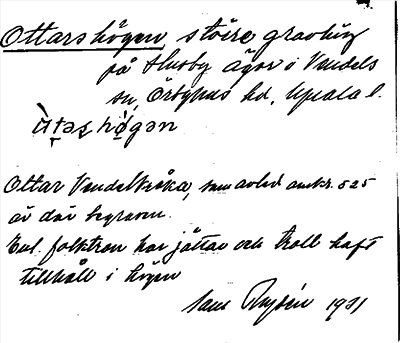 Ottarshögen, större gravhög
på Husby ägor i Vendels
sn, Örbyhus hd, Upsala l.
ùtəshögən
Ottar Vendelkråka, som avled omkr. 525
är där begraven.
Enl. folktron har jättar och troll haft
tillhåll i högen
1931